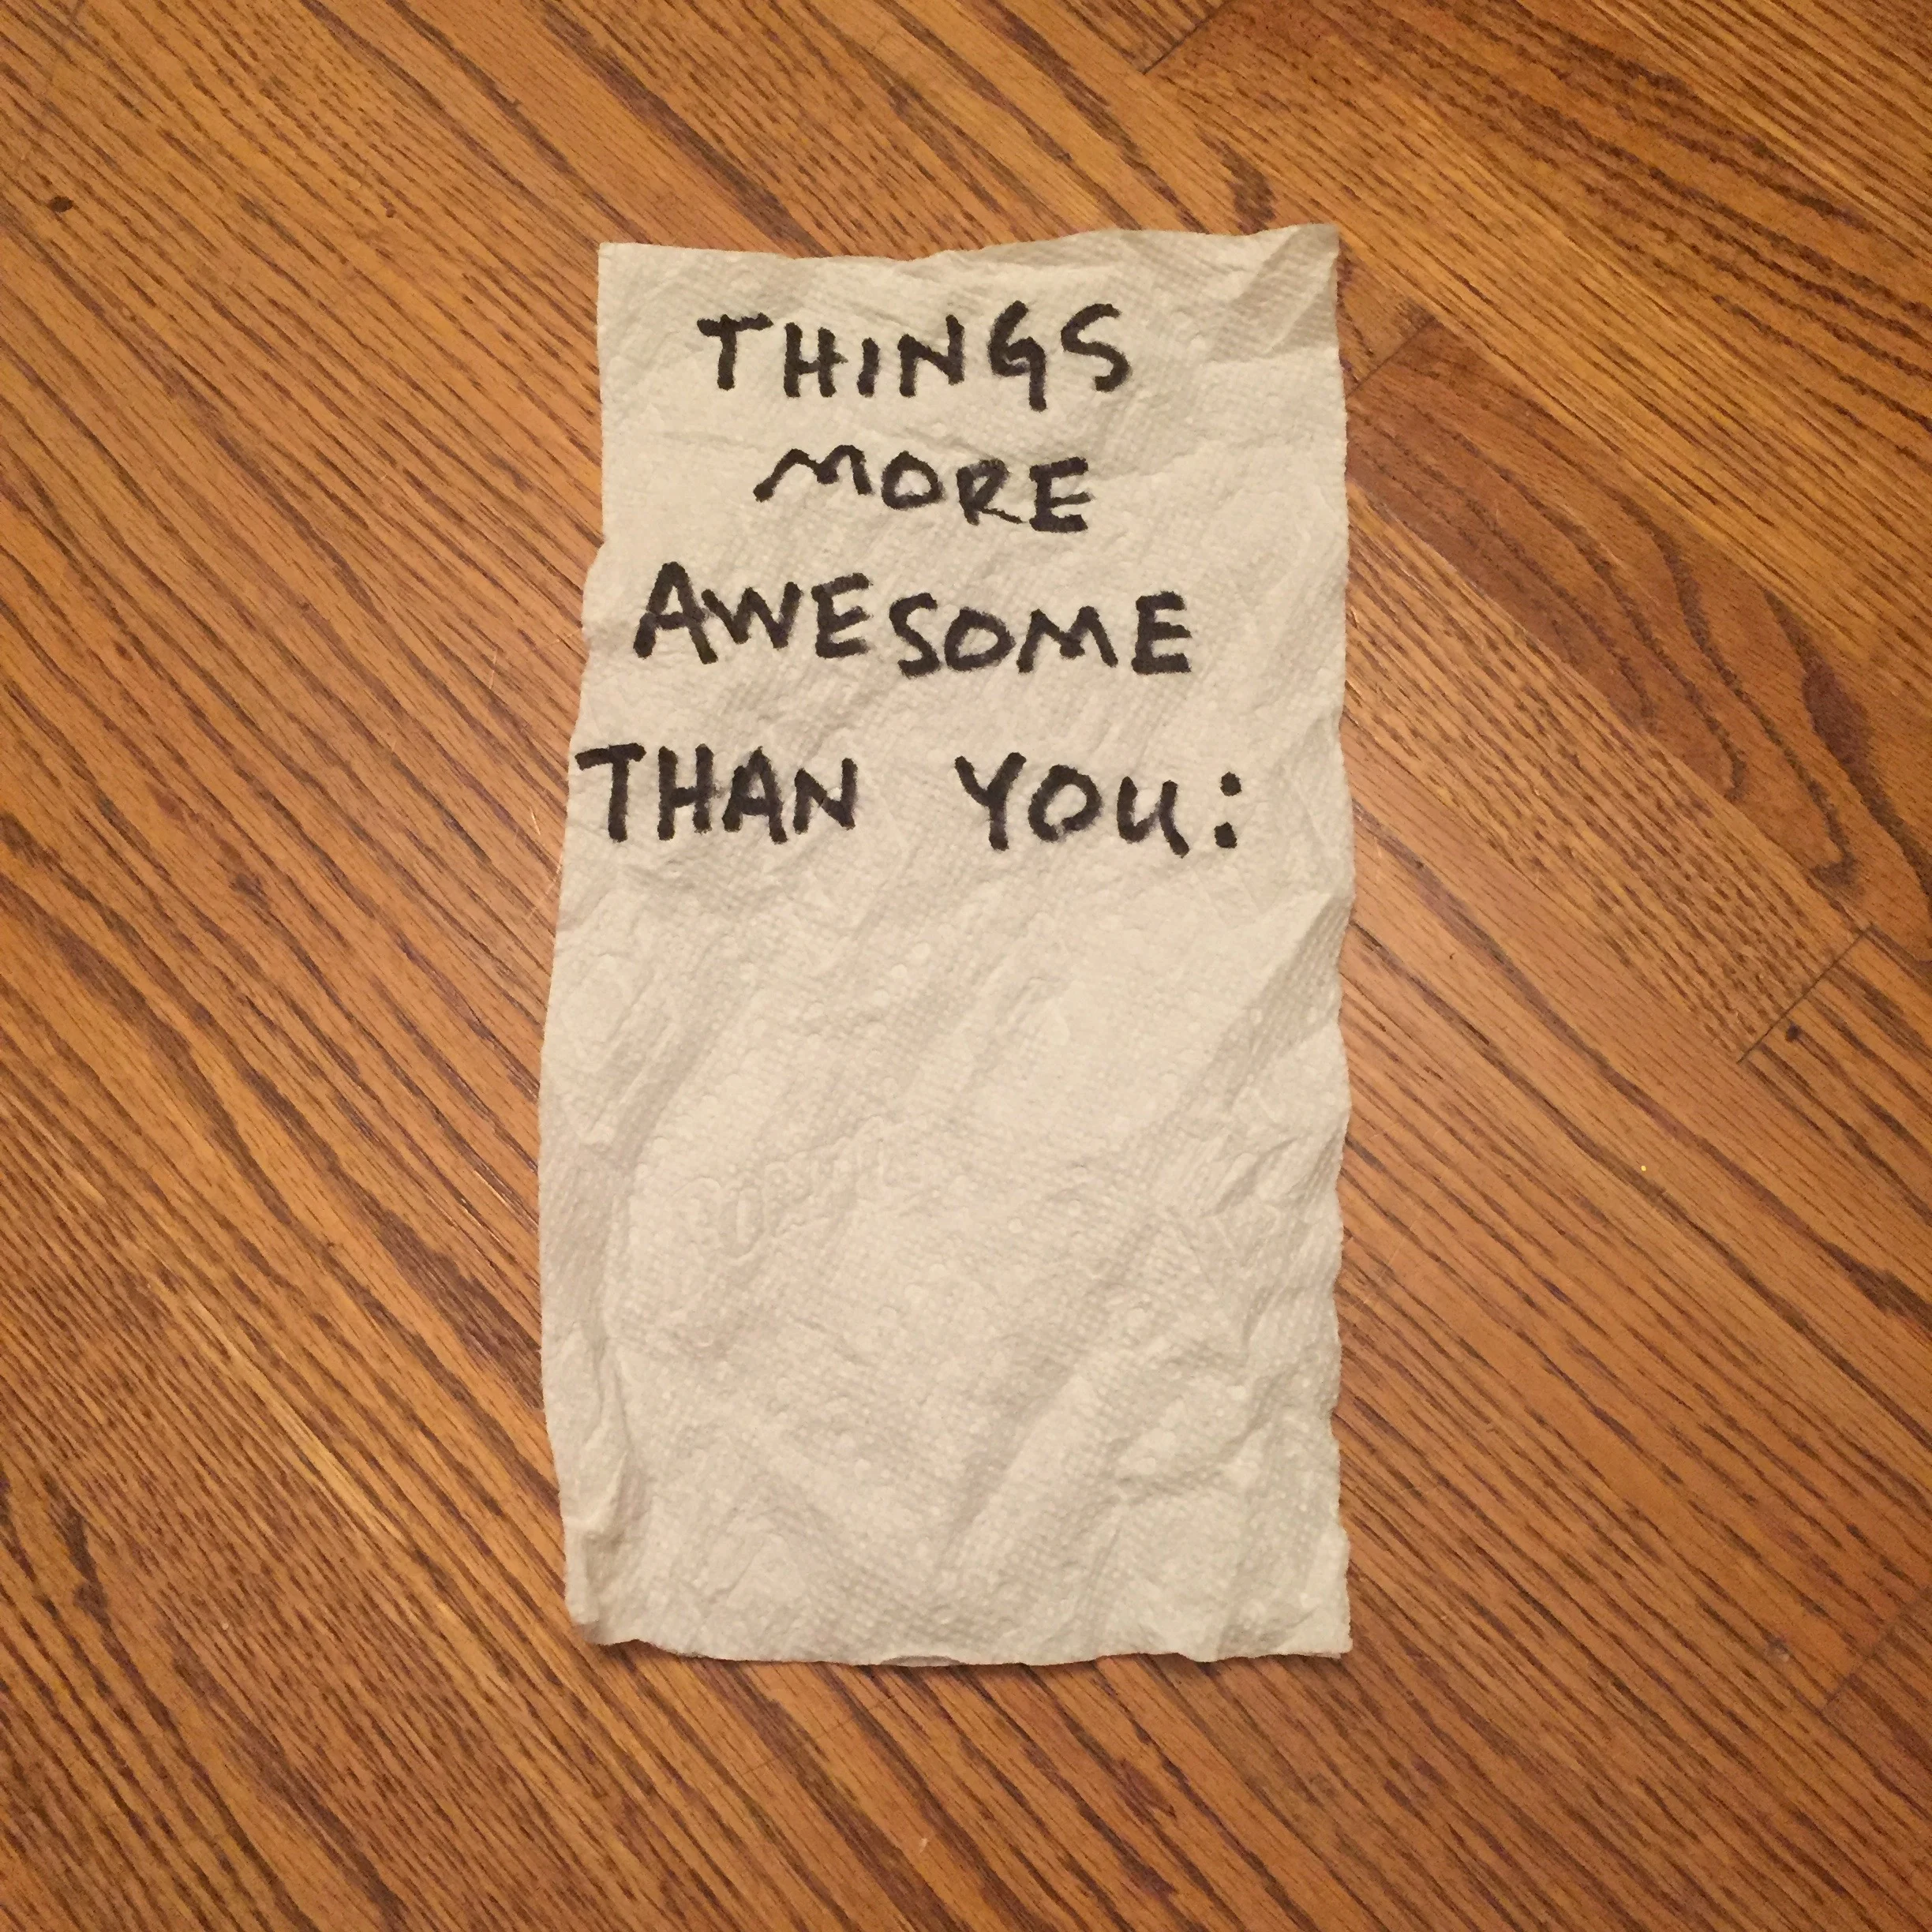 THINGS
MORE
AWESOME
THAN YOU: